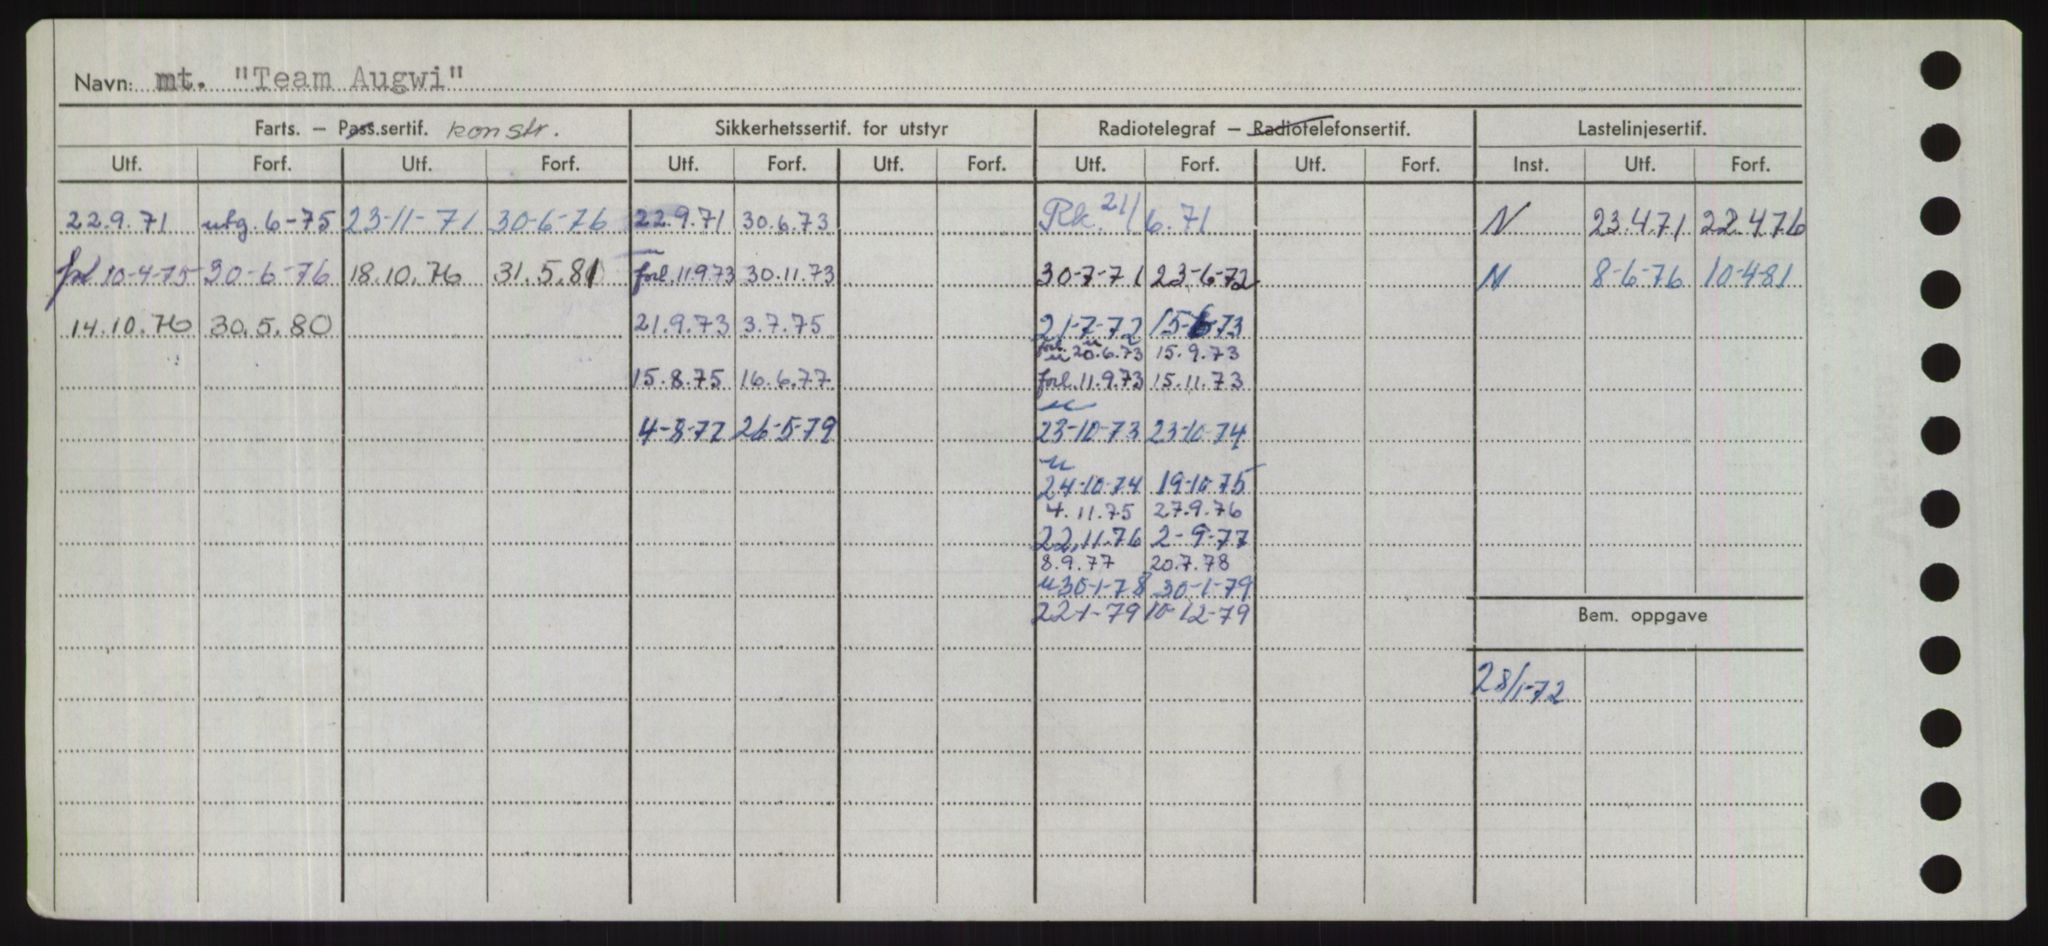 Navn: mt. "Team Augwi"
Farts. – Pass.sertif. konstr. Sikkerhetssertif. for utstyr Radiotelegraf – Radiotelefonsertif. Lastelinjesertif.
Utf. Forf. Utf. Forf. Utf. Forf. Utf. Forf. Utf. Forf. Utf. Forf. Inst. Utf. Forf.
22.9.71 utg. 6-75 23-11-71 30-6-76 22.9.71 30.6.73 Rk. 21/6.71 N 23.4.71 22.4.76
forl 10-4-75 30-6-76 18.10.76 31.5.81 forl. 11.9.73 30.11.73 30-7-71 23-6-72 N 8-6-76 10-4-81
14.10.76 30.5.80 21.9.73 3.7.75 21-7-72 15-6-73
forl. u 20.6.73 15.9.73
15.8.75 16.6.77 forl. 11.9.73 15.11.73
u
4-8-77 26-5-79 23-10-73 23-10-74
u
24-10-74 19-10-75
4.11.75 27.9.76
22.11.76 2-9-77
8.9.77 20.7.78
u 30-1-78 30-1-79
22-1-79 10-12-79
Bem. oppgave
28/1-72